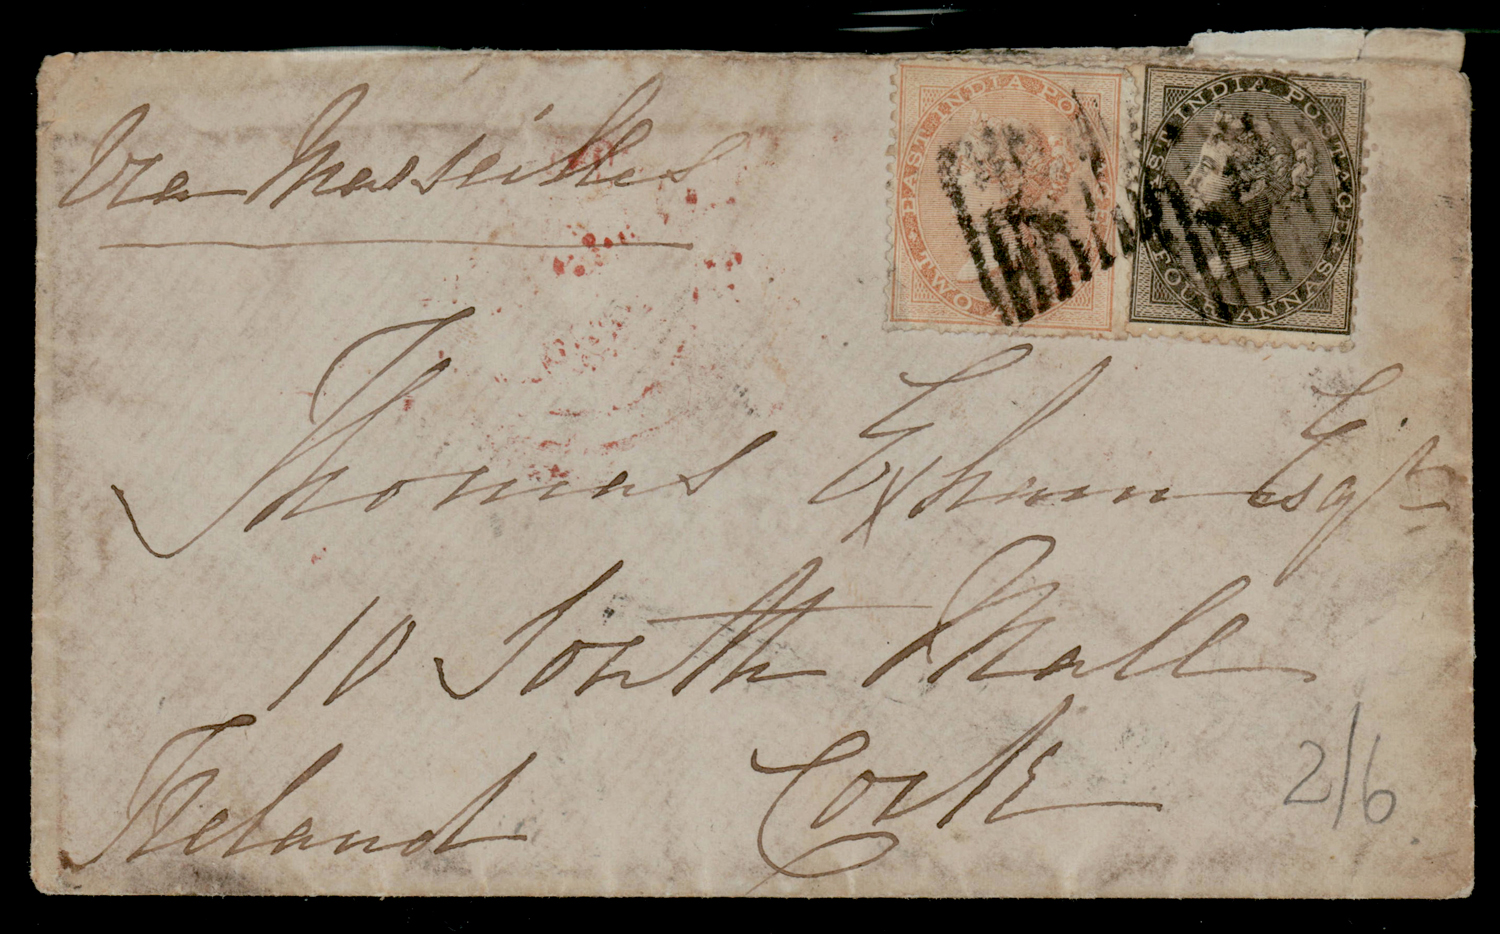 Via Marseilles
EAST INDIA PO
TWO
EAST INDIA POSTAGE
FOUR ANNAS
Thomas Exham Esqr
10 South Mall
Cork
Ireland
2/6